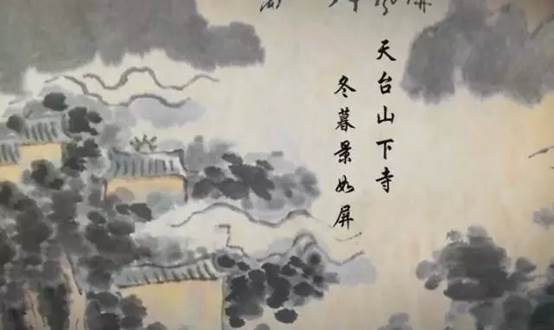 天台山下寺
冬暮景如屏